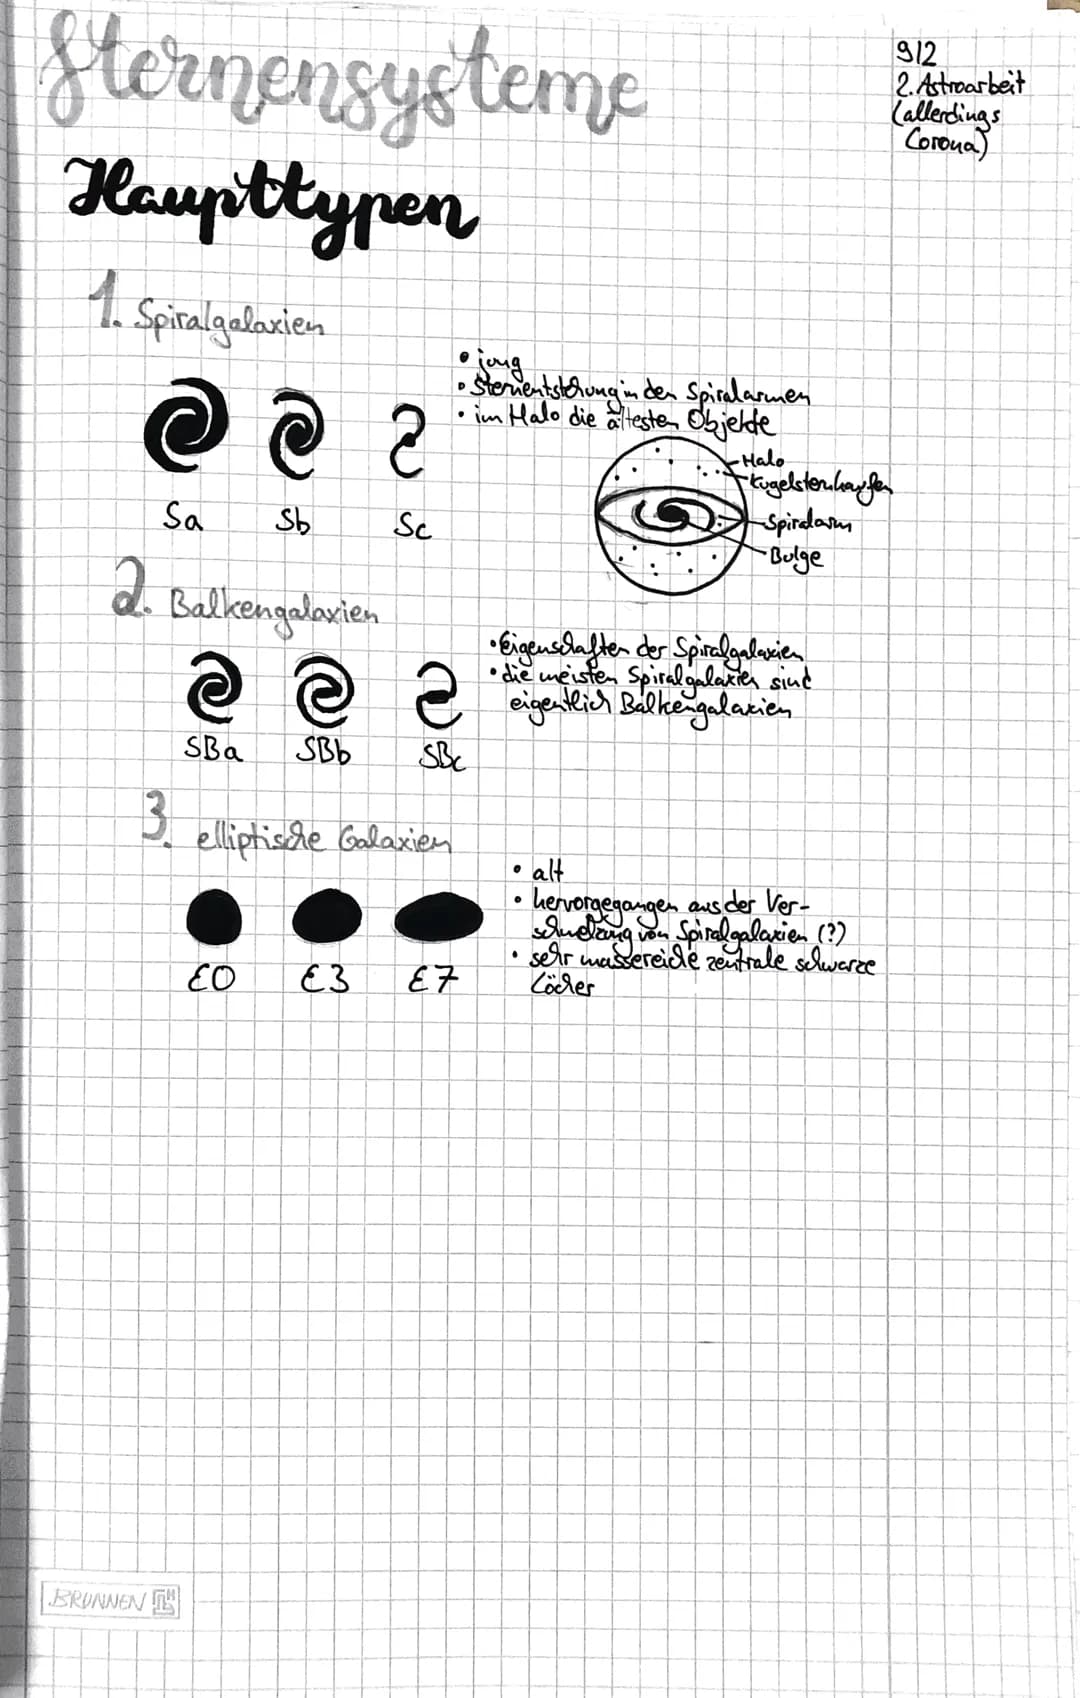 Sternensysteme
9/2
2. Astroarbeit
(allerdings
Corona)
Haupttypen
1. Spiralgalaxien
• jung
• Sternentstehung in den Spiralarmen
• im Halo die ältesten Objekte
Halo
Kugelsternhaufen
Spiralarm
Bulge
Sa Sb Sc
2. Balkengalaxien
• Eigenschaften der Spiralgalaxien
• die meisten Spiralgalaxien sind
eigentlich Balkengalaxien
SBa SBb SBc
3. elliptische Galaxien
• alt
• hervorgegangen aus der Ver-
schmelzung von Spiralgalaxien (?)
• sehr massereiche zentrale schwarze
Löcher
E0 E3 E7
BRUNNEN